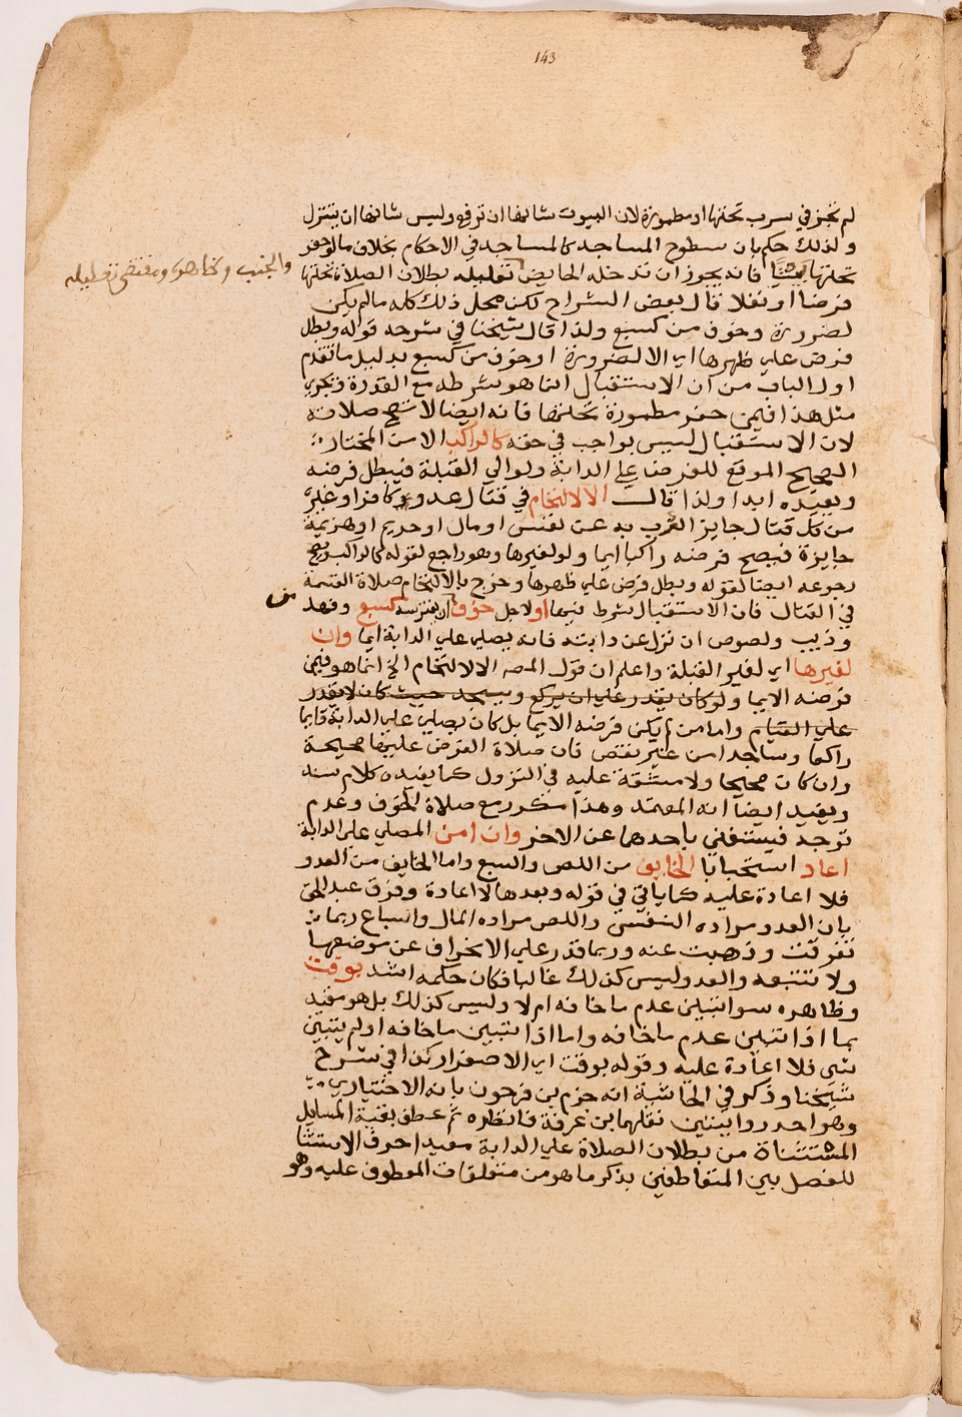 143
لم تجز في سرب تحتها او مطمورة لان البيوت شانها ان ترفع وليس شانها ان يتنزل
ولذلك حكم بان سطوح المساجد كالمساجد في الاحكام بخلاف مالوحفر
تحتها بيتا فانه يجوز ان تدخله الحايض تعليله بطلان الصلاة تحتها
والجنب وكخا ومقتضى تعليله
فرضا او نفلا قال بعض الشراح لكن محل ذلك كله مالم يكن
لضرورة وخوف من كسبع ولذا قال شيخنا في شرحه قوله وبطل
فرض علي ظهرها اي الا لضرورة او خوف من كسبع بدليل ما تقدم
اول الباب من ان الاستقبال انما هو شرط مع القدرة ويجري
مثل هذا فيمن حفر مطمورة تحتها فانه ايضا لا تصح صلاته
لان الاستقبال ليس بواجب في حقه كالراكب الا من المختار
الصحيح الموقع للفرض علي الدابة ولو الي القبلة فيبطل فرضه
ويعيده ابدا ولذا قال الا لالتحام في قتال عدو كافر او غيره
من كل قتال جايز الضرب به عن نفس او مال او حريم او هزيمة
جايزة فيصح فرضه راكبا ايما ولو لغيرها وهو راجع لقوله كالراكب ويصح
رجوعه ايضا لقوله وبطل فرض علي ظهرها وخرج بالالتحام صلاة القسمة
في القتال فان الاستقبال شرط فيها او لاجل خوف من كسبع وفهد
وذيب ولصوص ان نزل عن دابته فانه يصلي علي الدابة ايما وان
لغيرها اي لغير القبلة واعلم ان قول المصه الا لالتحام الخ انما هو فيمن
فرضه الايما ولو كان يقدر علي ان يركع ويسجد حيث كان لا يقدر
علي القيام واما من لم يكن فرضه الايما بل كان يصلي علي الدابة قايما
راكعا وساجدا من غير نقص فان صلاة الفرض عليها صحيحة
وان كان صحيحا ولا مشقة عليه في النزول كما يفيده كلام سند
ويفيد ايضا انه المعتمد وهذا مكرر مع صلاة الخوف وعدم
توجه فيستغني باحدهما عن الاخر وان امن المصلي علي الدابة
اعاد استحبابا الخايف من اللص والسبع واما الخايف من العدو
فلا اعادة عليه كما ياتي في قوله وبعدها لا اعادة وفرق عبد الحق
بان العدو مراده النفس واللص مراده المال والسباع ربما
تفرقت وذهبت عنه وربما قدر علي الانحراف عن موضعها
ولا تتبعه والعدو ليس كذلك غالبا فكان حكمه اشد بوقت
وظاهره سوا تبين عدم ما خافه ام لا وليس كذلك بل هو مقيد
بما اذا تبين عدم ما خافه واما اذا تبين ما خافه او لم يتبين
شي فلا اعادة عليه وقوله بوقت اي الاصفرار كذا في شرح
شيخنا وذكر في الحاشية انه جزم بن فرحون بانه الاختياري
وهو احد روايتين نقلهما بن عرفة فانظره ثم عطف بقية المسايل
المستثناة من بطلان الصلاة علي الدابة معيدا حرف الاستثنا
للفصل بين المتعاطفين بذكر ما هو من متعلقات المعطوف عليه وهو